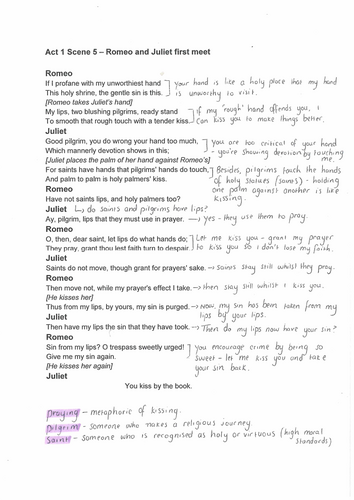 Act 1 Scene 5 – Romeo and Juliet first meet
Romeo
If I profane with my unworthiest hand
This holy shrine, the gentle sin is this.
] your hand is like a holy place that my hand
is unworthy to visit.
[Romeo takes Juliet's hand]
My lips, two blushing pilgrims, ready stand
To smooth that rough touch with a tender kiss.
] if my "rough" hand offends you, I
can kiss you to make things better.
Juliet
Good pilgrim, you do wrong your hand too much,
Which mannerly devotion shows in this;
] you are too critical of your hand
- you're showing devotion by touching
me.
[Juliet places the palm of her hand against Romeo's]
For saints have hands that pilgrims' hands do touch,
And palm to palm is holy palmers' kiss.
] Besides, pilgrims touch the hands
of holy statues (saints) - holding
one palm against another is like
kissing.
Romeo
Have not saints lips, and holy palmers too?
Juliet ↳ do saints and pilgrims have lips?
Ay, pilgrim, lips that they must use in prayer. → yes - they use them to pray.
Romeo
O, then, dear saint, let lips do what hands do;
They pray, grant thou lest faith turn to despair.
] Let me kiss you - grant my prayer
to kiss you so I don't lose my faith.
Juliet
Saints do not move, though grant for prayers' sake. → saints stay still whilst they pray.
Romeo
Then move not, while my prayer's effect I take. → then stay still whilst I kiss you.
[He kisses her]
Thus from my lips, by yours, my sin is purged. → now, my sin has been taken from my
lips by your lips.
Juliet
Then have my lips the sin that they have took. → Then do my lips now have your sin?
Romeo
Sin from my lips? O trespass sweetly urged!
Give me my sin again.
] you encourage crime by being so
sweet - let me kiss you and take
your sin back.
[He kisses her again]
Juliet
You kiss by the book.
praying - metaphoric of kissing.
pilgrim - someone who makes a religious journey.
Saint - someone who is recognised as holy or virtuous (high moral
standards)